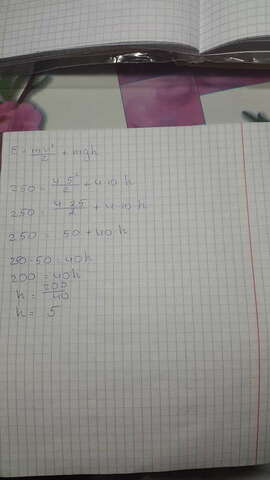 E = mv²/2 + mgh
250 = 4·5²/2 + 4·10·h
250 = 4·25/2 + 4·10·h
250 = 50 + 40h
250-50 = 40h
200 = 40h
h = 200/40
h = 5